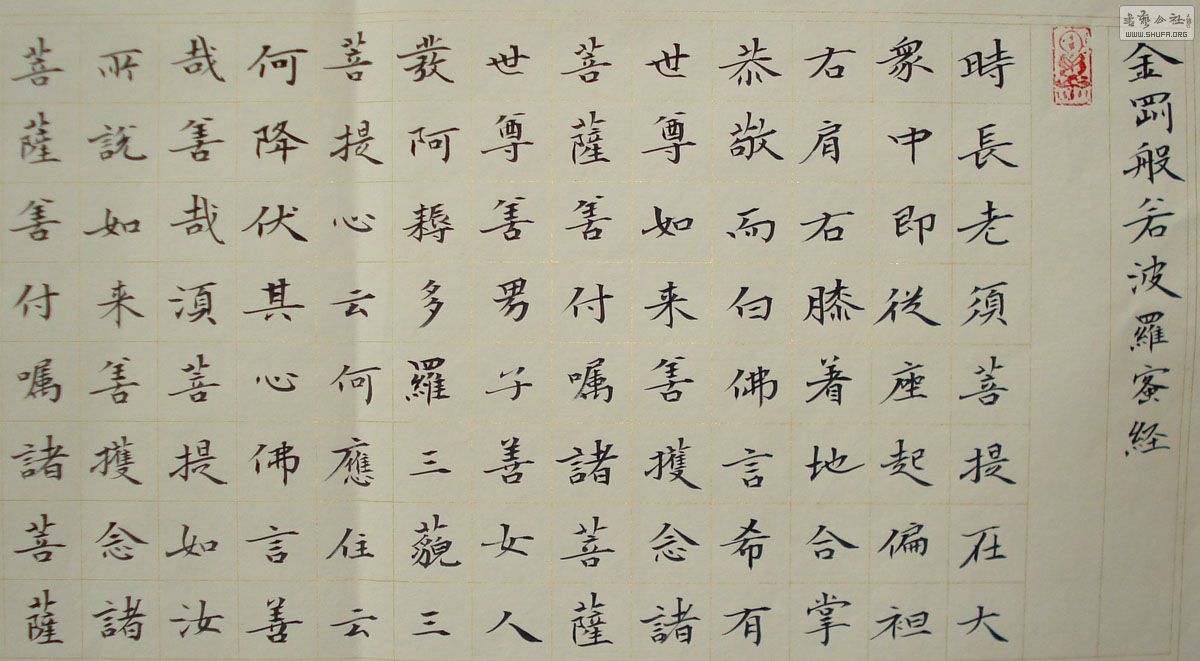 書藝公社
WWW.SHUFA.ORG
金剛般若波羅蜜経
時長老須菩提在大
衆中即従座起偏袒
右肩右膝着地合掌
恭敬而白佛言希有
世尊如来善獲念諸
菩薩善付嘱諸菩薩
世尊善男子善女人
發阿耨多羅三藐三
菩提心云何應住云
何降伏其心佛言善
哉善哉須菩提如汝
所說如来善獲念諸
菩薩善付嘱諸菩薩